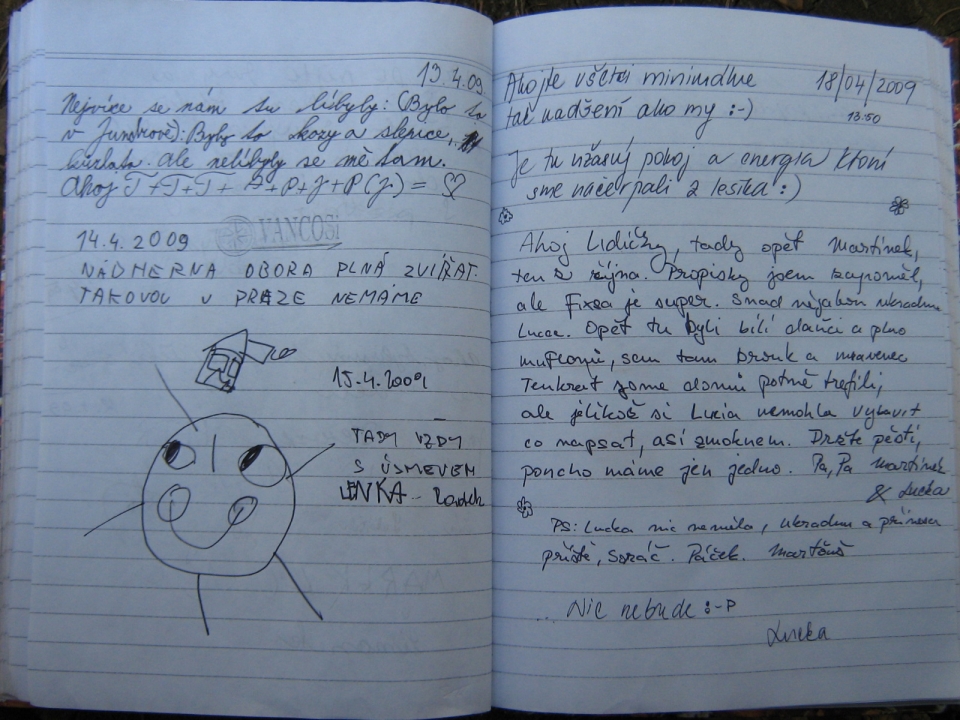 13.4.09
Nejvíce se nám tu líbyly: (Bylo to
v Jundrově): Byly to kozy a slepice,
kuřata. ale nelíbyly se mě tam.
Ahoj T+T+T+ A+P+J+P(J) = ♡
VANCOSi
14.4.2009
NÁDHERNÁ OBORA PLNÁ ZVÍŘAT.
TAKOVOU V PRAZE NEMÁME
15.4.2009
TADY VŽDY
S ÚSMEVEM
LENKA - Radek
Ahojte všetci minimálne 18/04/2009
tak nadšení ako my :-) 13:50
Je tu úžasný pokoj a energia ktorú
sme načerpali z lesíka :)
Ahoj Lidičky, tady opět Martínek,
ten z října. Propisky jsem zapoměl,
ale Fixa je super. Snad nějakou ukradnu
Lucce. Opět tu byli bílí daňci a plno
muflonů, sem tam brouk a mravenec
Tenkrát jsme domů potmě trefili,
ale jelikož si Lucia nemohla vybavit
co napsat, asi zmoknem. Držte pěstí,
poncho máme jen jedno. Pa, Pa Martínek
& Lucka
PS: Lucka nic neměla, ukradnu a přinesu
příště, Soráč. Páček. Martöuš
... Nic nebude :-P
Lucka